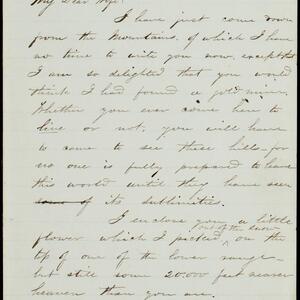 My Dear Wife:
I have just come down
from the Mountains, of which I have
no time to write you now, except that
I am so delighted that you would
think I had found a gold mine.
Whether you ever come here to
live or not, you will have
to come to see these hills—for
no one is fully prepared to leave
this world until they have seen
some of its sublimities.
I enclose you a little
out of the snow
flower which I picked ^ on the
tip of one of the lower range—
but still some 20,000 feet nearer
heaven than you are.